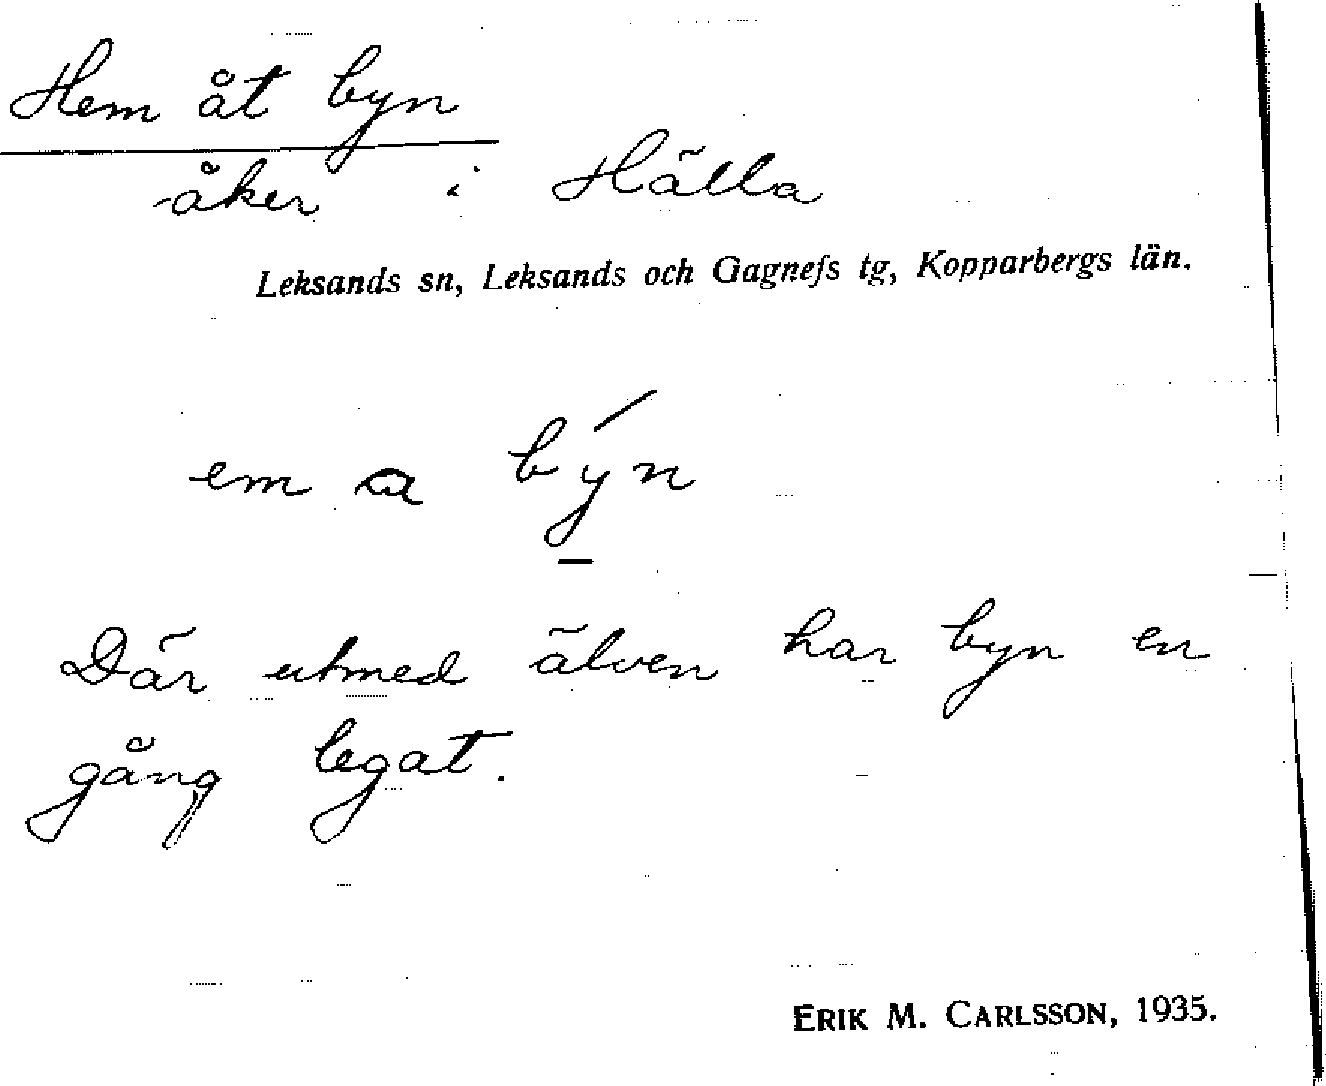 Hem åt byn
åker i Hälla
Leksands sn, Leksands och Gagnefs tg, Kopparbergs län.
em a býn
Där utmed älven har byn en
gång legat.
ERIK M. CARLSSON, 1935.